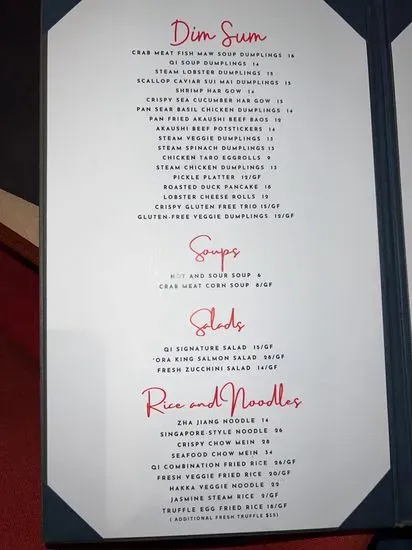 Dim Sum
CRAB MEAT FISH MAW SOUP DUMPLINGS 16
QI SOUP DUMPLINGS 14
STEAM LOBSTER DUMPLINGS 15
SCALLOP CAVIAR SUI MAI DUMPLINGS 15
SHRIMP HAR GOW 14
CRISPY SEA CUCUMBER HAR GOW 15
PAN SEAR BASIL CHICKEN DUMPLINGS 14
PAN FRIED AKAUSHI BEEF BAOS 12
AKAUSHI BEEF POTSTICKERS 14
STEAM VEGGIE DUMPLINGS 13
STEAM SPINACH DUMPLINGS 13
CHICKEN TARO EGGROLLS 9
STEAM CHICKEN DUMPLINGS 13
PICKLE PLATTER 12/GF
ROASTED DUCK PANCAKE 18
LOBSTER CHEESE ROLLS 12
CRISPY GLUTEN FREE TRIO 15/GF
GLUTEN-FREE VEGGIE DUMPLINGS 12/GF
Soups
HOT AND SOUR SOUP 6
CRAB MEAT CORN SOUP 8/GF
Salads
QI SIGNATURE SALAD 15/GF
*ORA KING SALMON SALAD 28/GF
FRESH ZUCCHINI SALAD 14/GF
Rice and Noodles
ZHA JIANG NOODLE 16
SINGAPORE-STYLE NOODLE 26
CRISPY CHOW MEIN 28
SEAFOOD CHOW MEIN 34
QI COMBINATION FRIED RICE 26/GF
FRESH VEGGIE FRIED RICE 20/GF
HAKKA VEGGIE NOODLE 22
JASMINE STEAM RICE 2/GF
TRUFFLE EGG FRIED RICE 18/GF
( ADDITIONAL FRESH TRUFFLE $25)